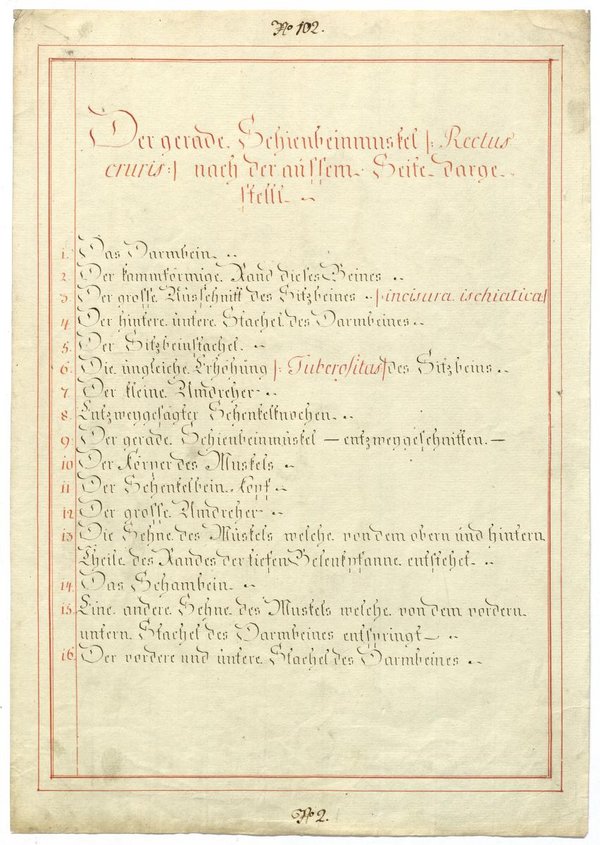 No 102.
Der gerade Schienbeinmuskel |: Rectus
cruris :| nach der äussern Seite darge
stellt
1. Das Darmbein
2. Der kammförmige Rand dieses Beines
3 Der grosse Ausschnitt des Sitzbeines |: incisura ischiatica |
4 Der hintere untere Stachel des Darmbeines
5. Der Sitzbeinstachel.
6. Die ungleiche Erhöhung |: Tuberositas | des Sitzbeins
7 Der kleine Umdreher
8. Entzweygesägter Schenkelknochen.
9. Der gerade Schienbeinmuskel — entzweygeschnitten. —
10 Der Körper des Muskels
11 Der Schenkelbein Kopf
12 Der grosse Umdreher
13 Die Sehne des Muskels welche von dem obern und hintern
Theile des Randes der tiefen Gelenkpfanne entstehet
14. Das Schambein
15. Eine andere Sehne des Muskels welche von dem vordern
untern Stachel des Darmbeines entspringt —
16. Der vordere und untere Stachel des Darmbeines
No 2.